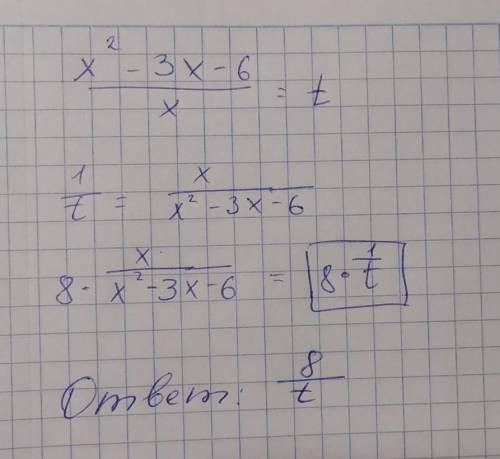 x² - 3x - 6 / x = t
1/t = x / x² - 3x - 6
8 · x / x² - 3x - 6 = 8 · 1/t
Ответ: 8/t